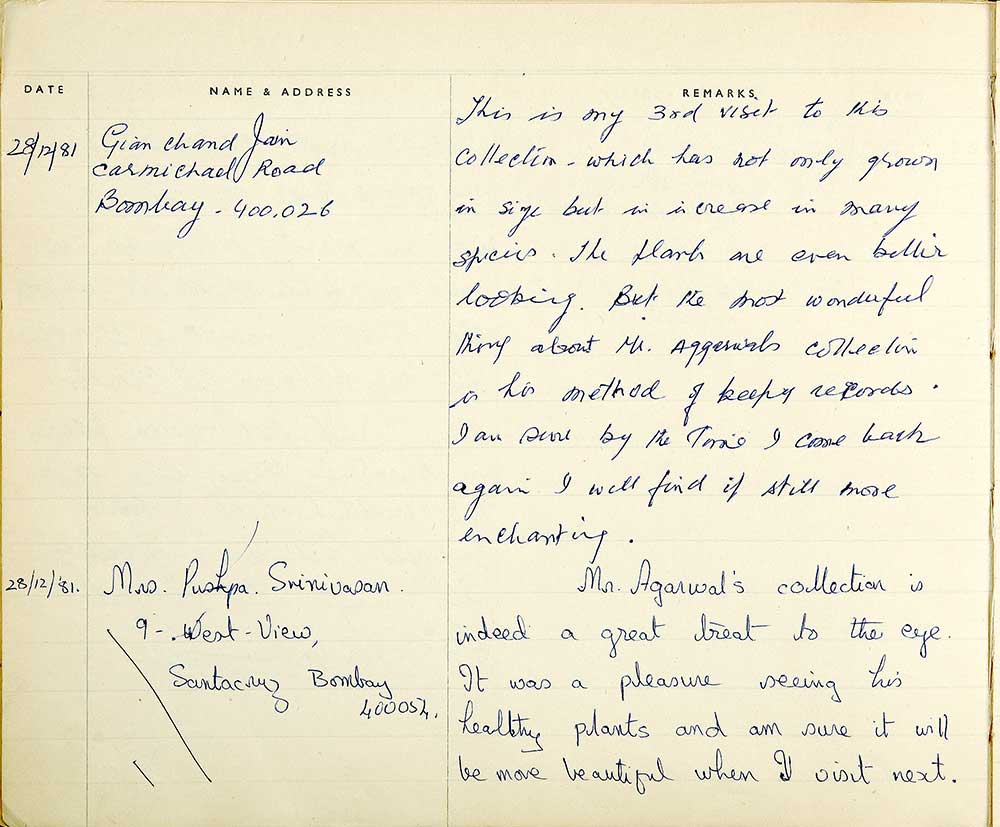 DATE
NAME & ADDRESS
REMARKS
28/12/81
Gian chand Jain
Carmichael Road
Bombay - 400.026
This is my 3rd visit to this
Collection - which has not only grown
in size but in increase in many
species. The plants are even better
looking. But the most wonderful
thing about Mr. Aggarwals collection
is his method of keeping records.
I am sure by the Time I come back
again I will find it still more
enchanting.
28/12/'81.
Mrs. Pushpa. Srinivasan.
9-. West-View,
Santacruz Bombay
400054.
Mr. Agarwal's collection is
indeed a great treat to the eye.
It was a pleasure seeing his
healthy plants and am sure it will
be more beautiful when I visit next.